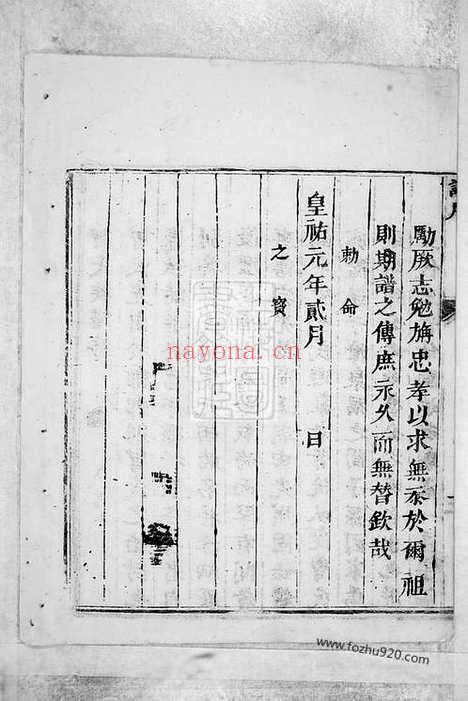 勵厥志勉旃忠孝以求無忝於爾祖
則期譜之傳庶永久而無替欽哉
勅命
皇祐元年貳月 日
之寳
nayona.cn
www.fozhu920.com